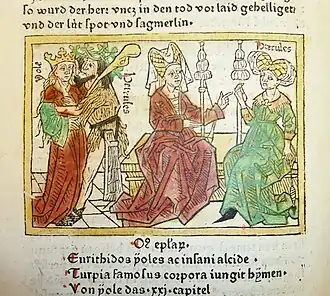 so wurd der herʒ vncz in den tod vor laid gehelliget
vnd der lüt spot vnd sagmerlin.
yole
hercules
Hercules
Eurithidos yoles ac insani alcide
Turpia famosus corpora iungit hymen
Von yole das .xxj. capitel